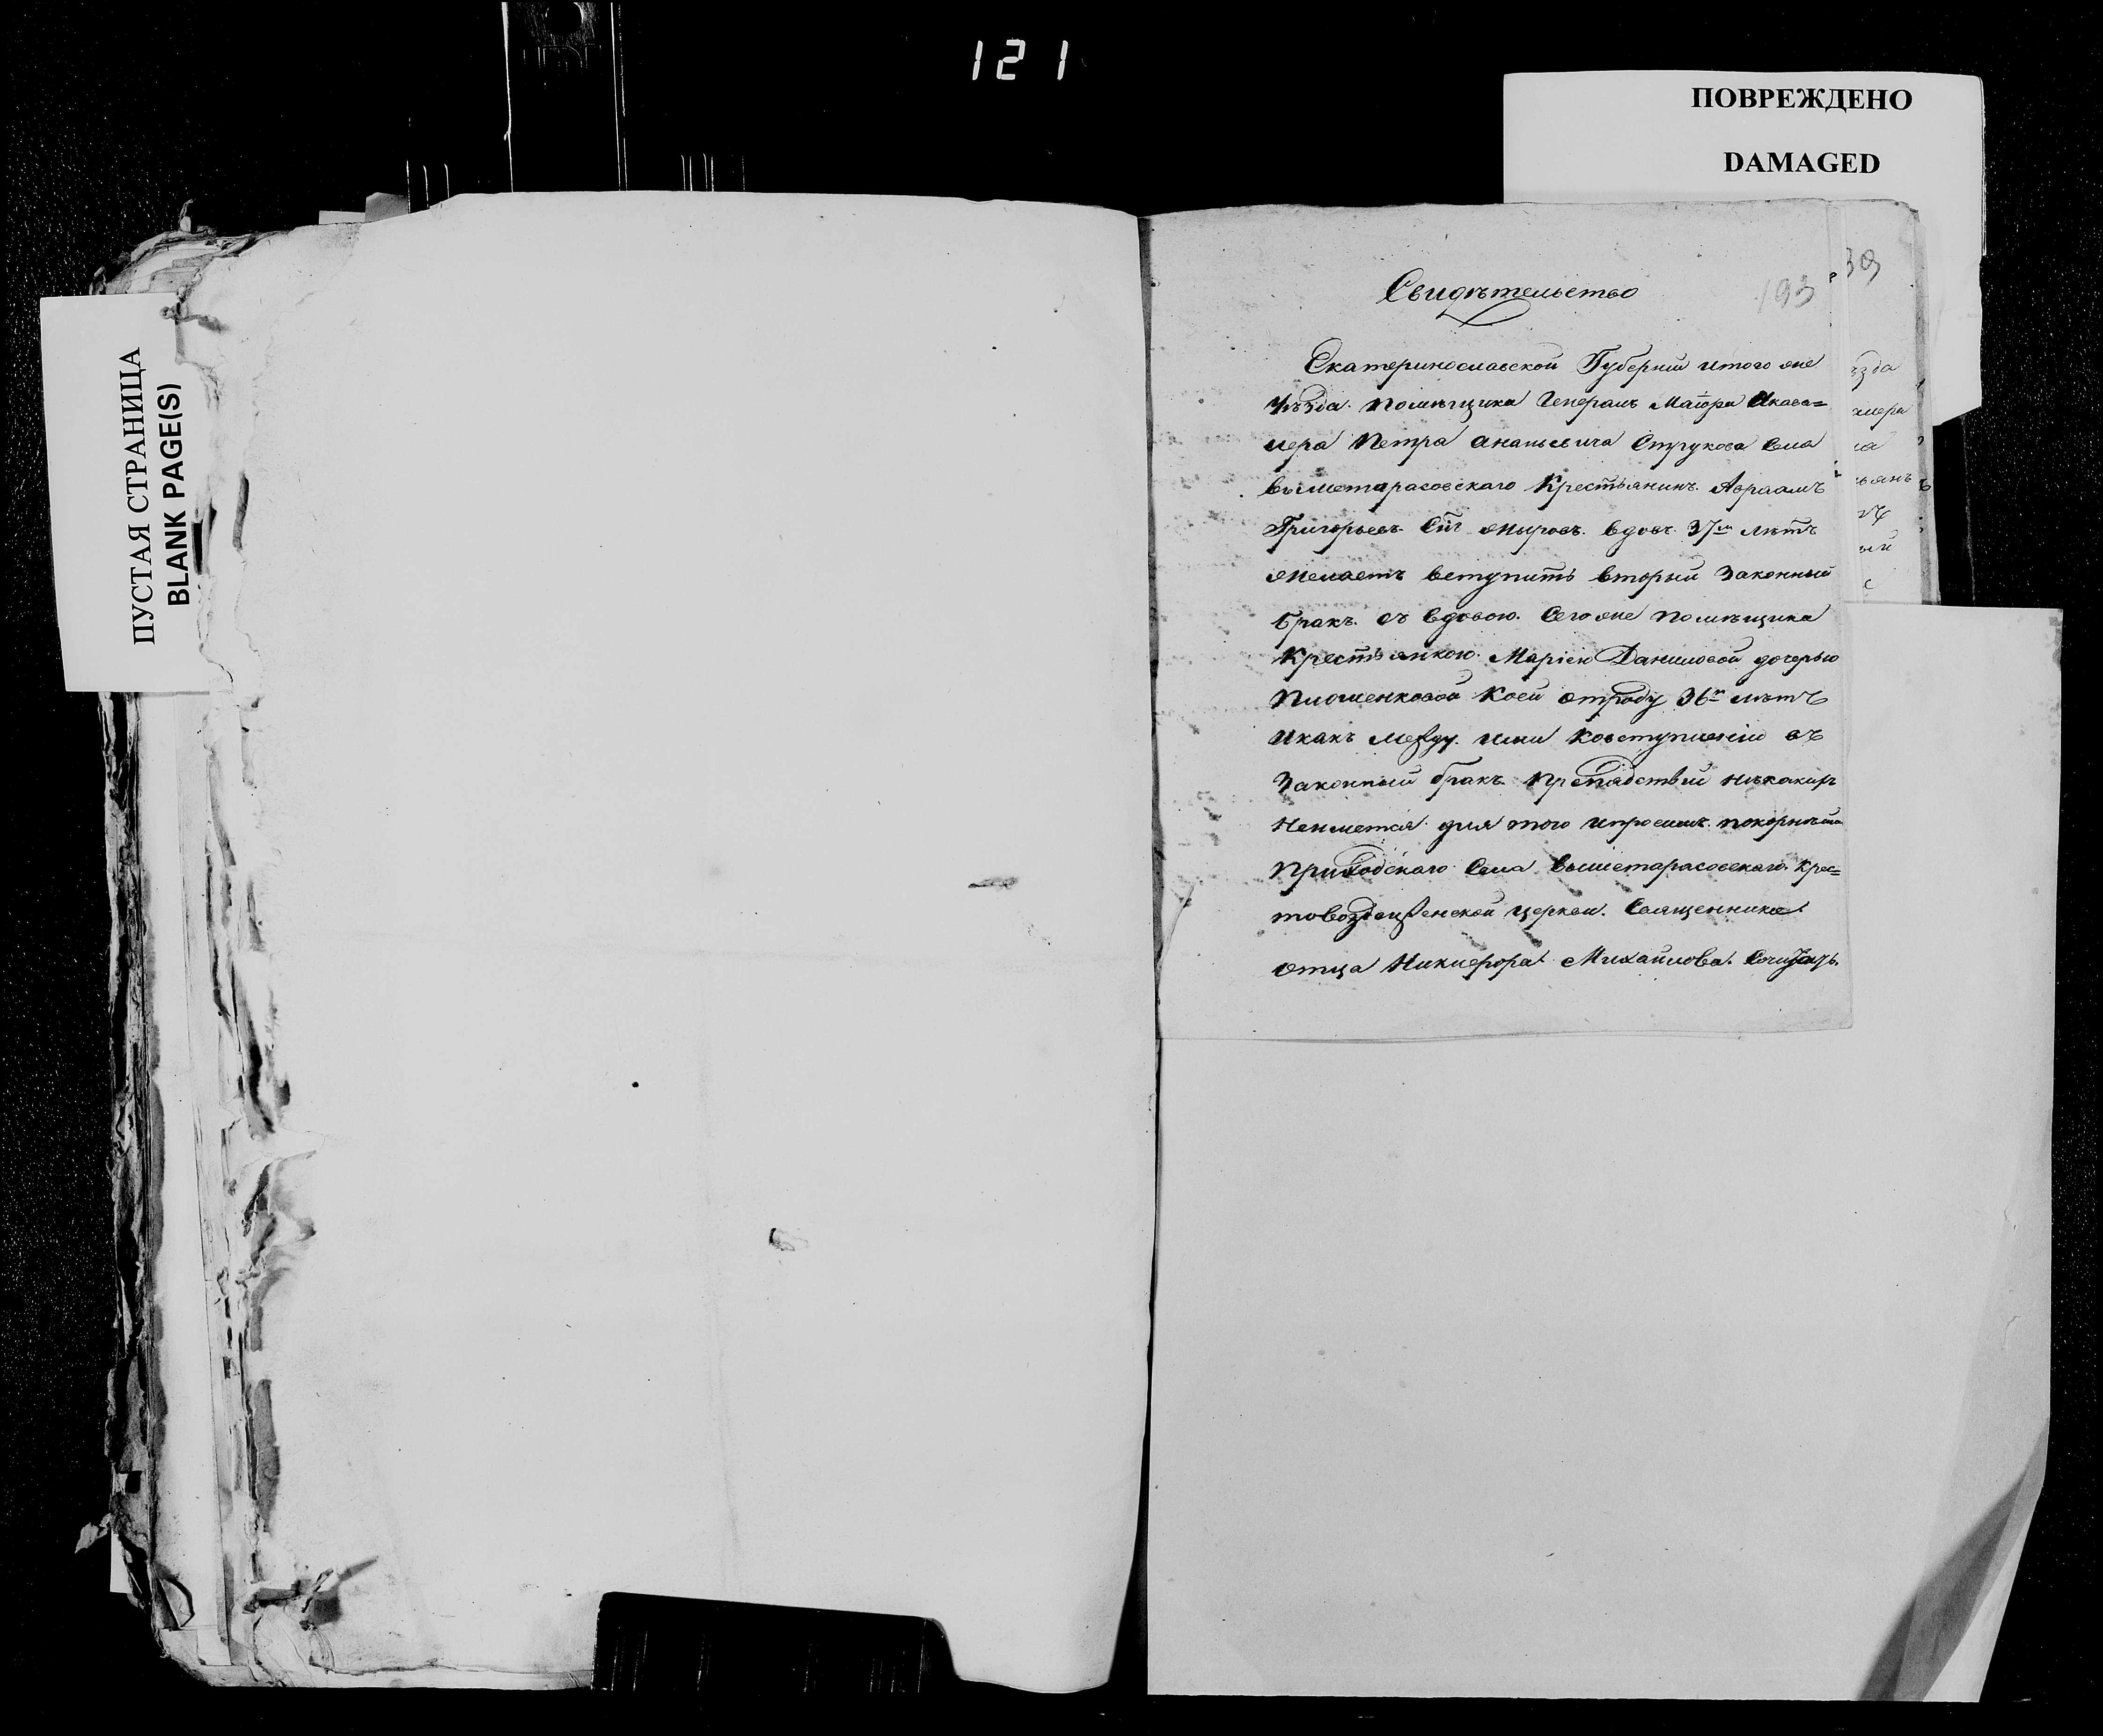 121
ПОВРЕЖДЕНО
DAMAGED
ПУСТАЯ СТРАНИЦА
BLANK PAGE(S)
39
193
Свидѣтельство
Екатеринославской Губерніи итого же
Уѣзда. помѣщика Генералъ Маіора Икава=
лера Петра Ананьевича Струкова Села
вышетарасовскаго Крестьянинъ Авраамъ
Григорьевъ Сынъ вдовъ 37ми лѣтъ
желаетъ вступить вторый Законный
бракъ съ вдовою. Сегоже помѣщика
Крестьянкою. Маріею Даниловой дочерью
коей отроду 36ти лѣтъ
Икакъ между ими ковступленію въ
Законный бракъ Препядствий никакихъ
Неимется для того ипросимъ покорнѣйше
Приходскаго Села Вышетарасовскаго Крес=
товоздвиженской церкви. Священника
отца Никифора Михайлова.
ѣзда